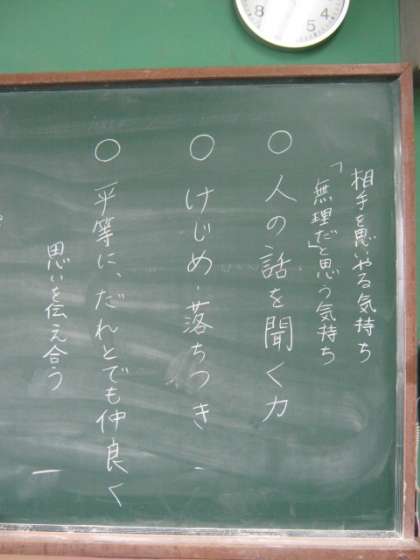 相手を思いやる気持ち
「無理だ」と思う気持ち
○ 人の話を聞く力
○ けじめ・落ちつき
○ 平等に、だれとでも仲良く
思いを伝え合う
8
7
6
5
4